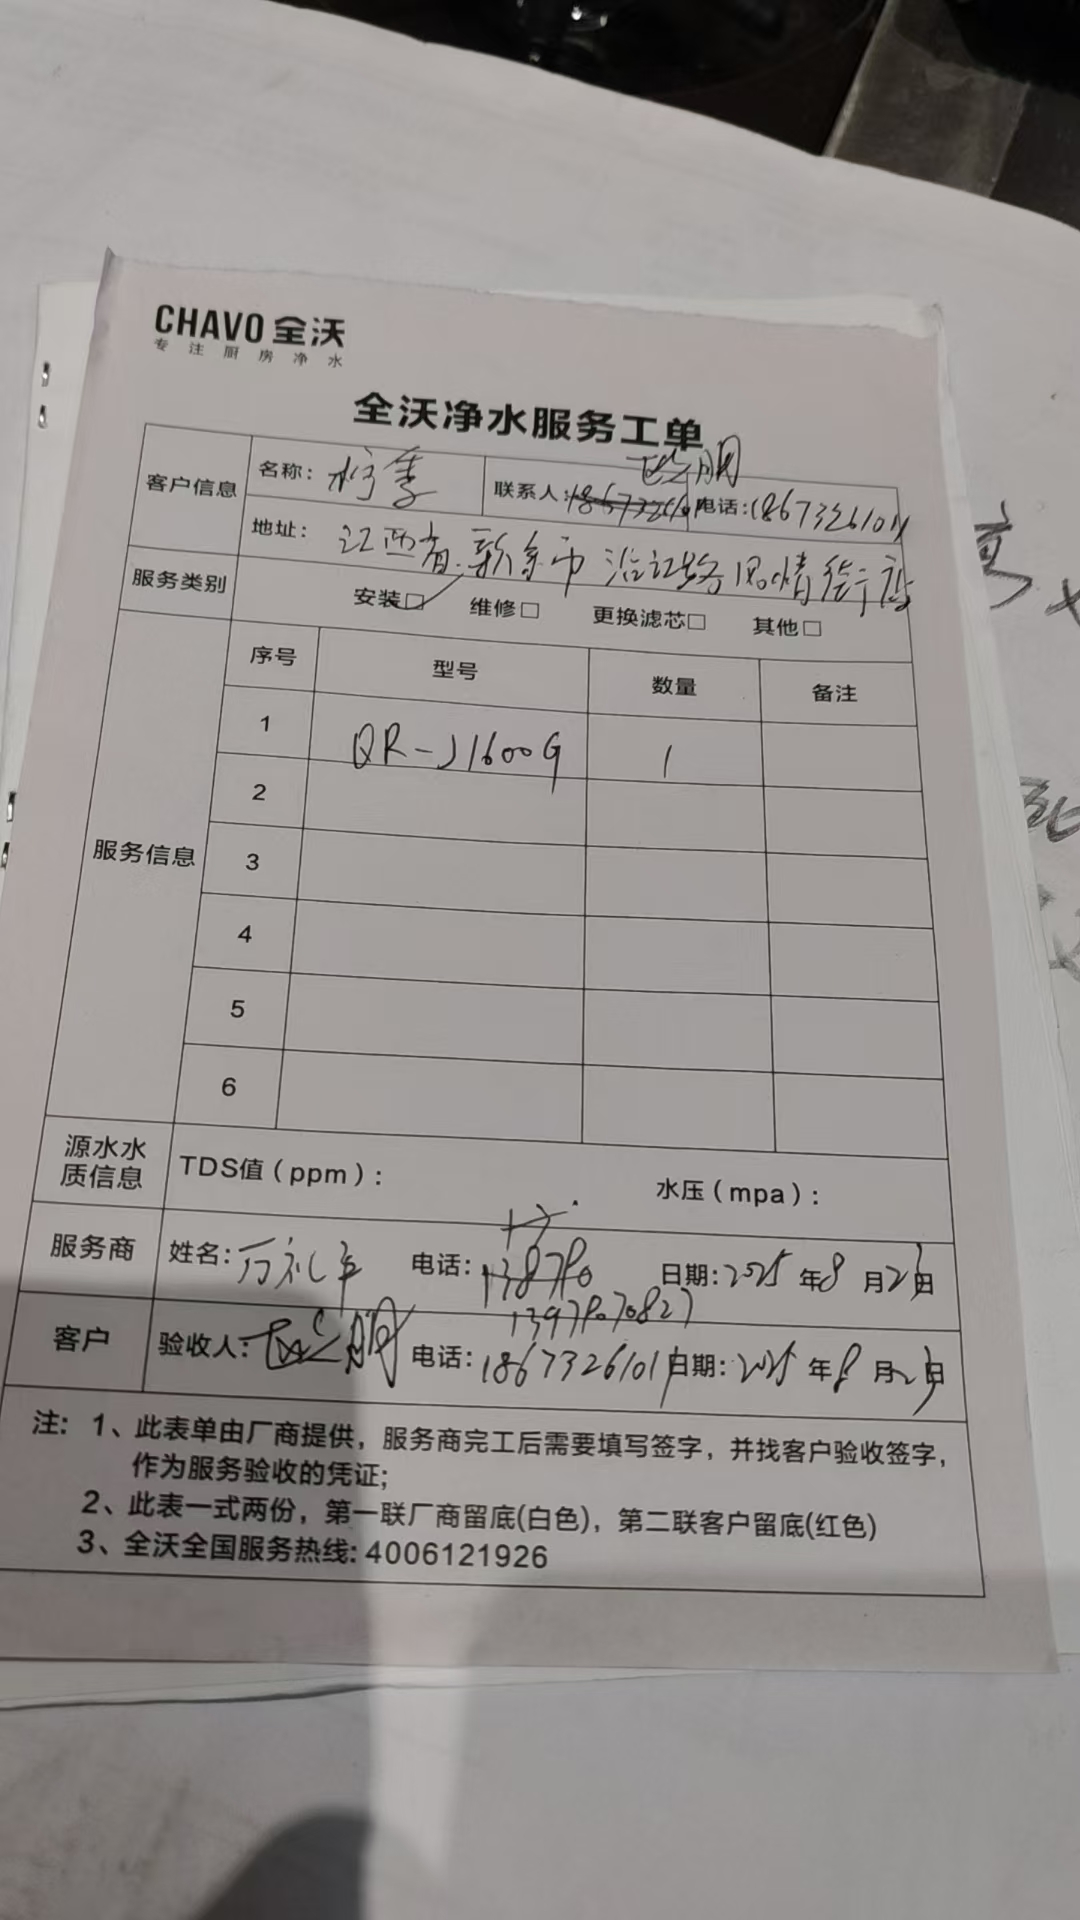 CHAVO 全沃
专注厨房净水
全沃净水服务工单
客户信息
名称: 柠季
联系人: 朋
电话: 18673261011
地址: 江西省新余市 沿江路风情街店
服务类别
安装☑ 维修□ 更换滤芯□ 其他□
服务信息
序号 型号 数量 备注
1 QR-J1600G 1
2
3
4
5
6
源水水质信息
TDS值(ppm): 水压(mpa):
服务商
姓名: 万礼军 电话: 138790 日期: 2025 年 8 月 23 日
13979070827
客户
验收人: 朋 电话: 18673261011 日期: 2025 年 8 月 23 日
注: 1、此表单由厂商提供，服务商完工后需要填写签字，并找客户验收签字，
作为服务验收的凭证;
2、此表一式两份，第一联厂商留底(白色)，第二联客户留底(红色)
3、全沃全国服务热线: 4006121926